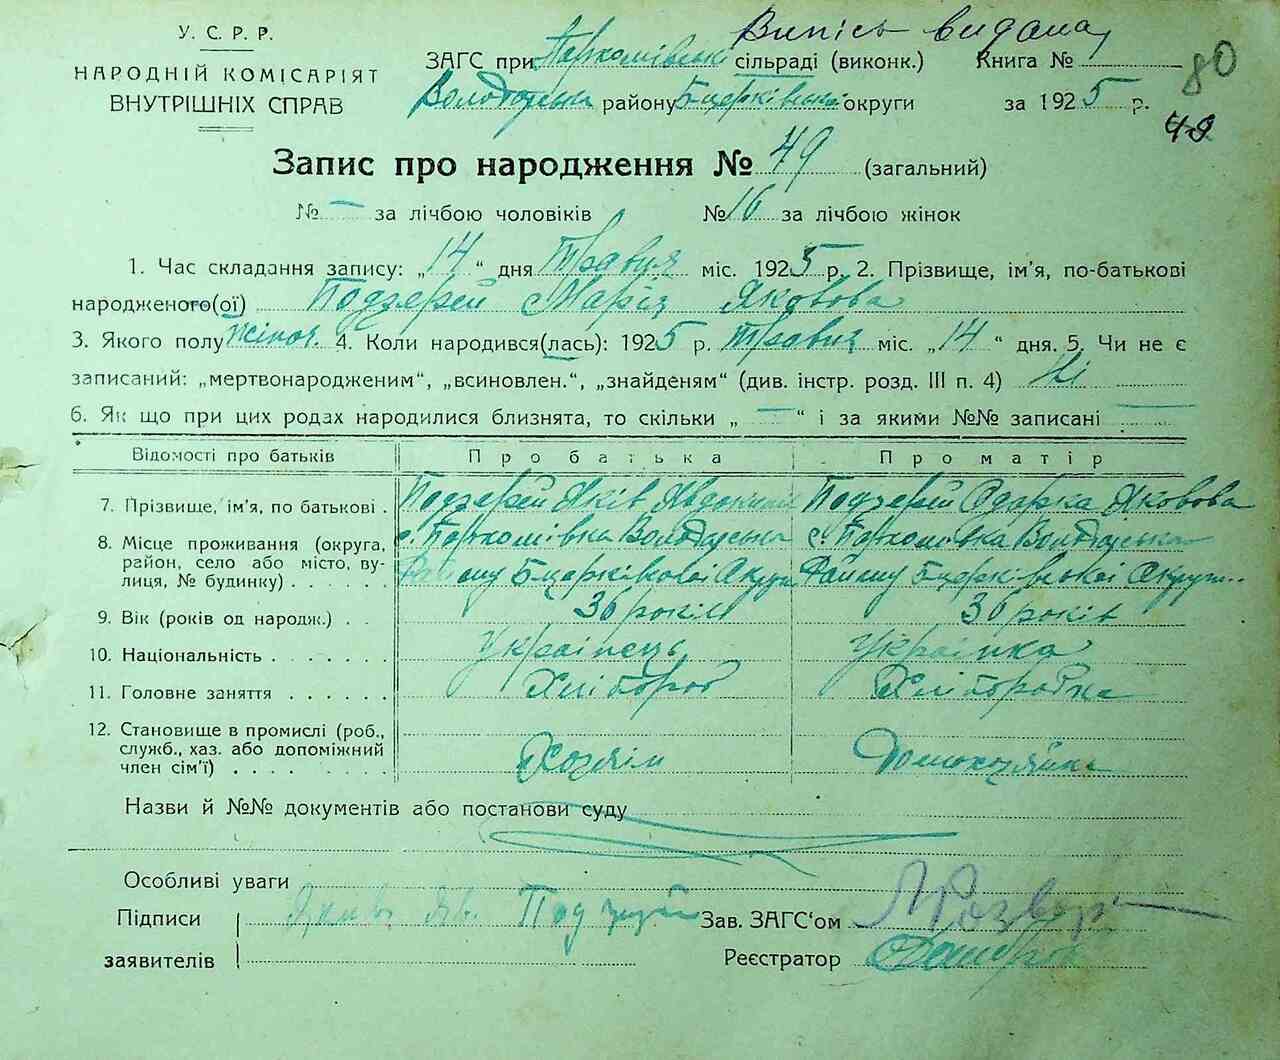 Випись видана
У. С. Р. Р.
НАРОДНІЙ КОМІСАРІЯТ
ВНУТРІШНІХ СПРАВ
ЗАГС при Пархомівській сільраді (виконк.) Книга №
80
Володарська району Б-церківської округи за 1925 р.
49
Запис про народження № 49 (загальний)
№ — за лічбою чоловіків № 16 за лічбою жінок
1. Час складання запису: „14“ дня Травня міс. 1925 р. 2. Прізвище, ім’я, по-батькові
народженого(ої) Подзерей Марія Яковова
3. Якого полу жіноч. 4. Коли народився(лась): 1925 р. Травня міс. „14“ дня. 5. Чи не є
записаний: „мертвонародженим“, „всиновлен.“, „знайденям“ (див. інстр. розд. III п. 4) Ні
6. Як що при цих родах народилися близнята, то скільки „ — “ і за якими №№ записані —
Відомості про батьків Про батька Про матір
7. Прізвище, ім’я, по батькові . Подзерей Яків Подзерей Одарка Яковова
8. Місце проживання (округа, район, село або місто, вулиця, № будинку) с. Пархомівка Володарська с. Пархомівка Володарська
Району Б-церківської Округи Району Б-церківської Округи
9. Вік (років од народж.) . 36 років 36 років
10. Національність Українець Українка
11. Головне заняття Хлібороб Хліборобка
12. Становище в промислі (роб., служб., хаз. або допоміжний член сім’ї) Хозяїн Домохозяйка
Назви й №№ документів або постанови суду
Особливі уваги
Підписи Яків Яв. Подзерей Зав. ЗАГС‘ом
заявителів Реєстратор